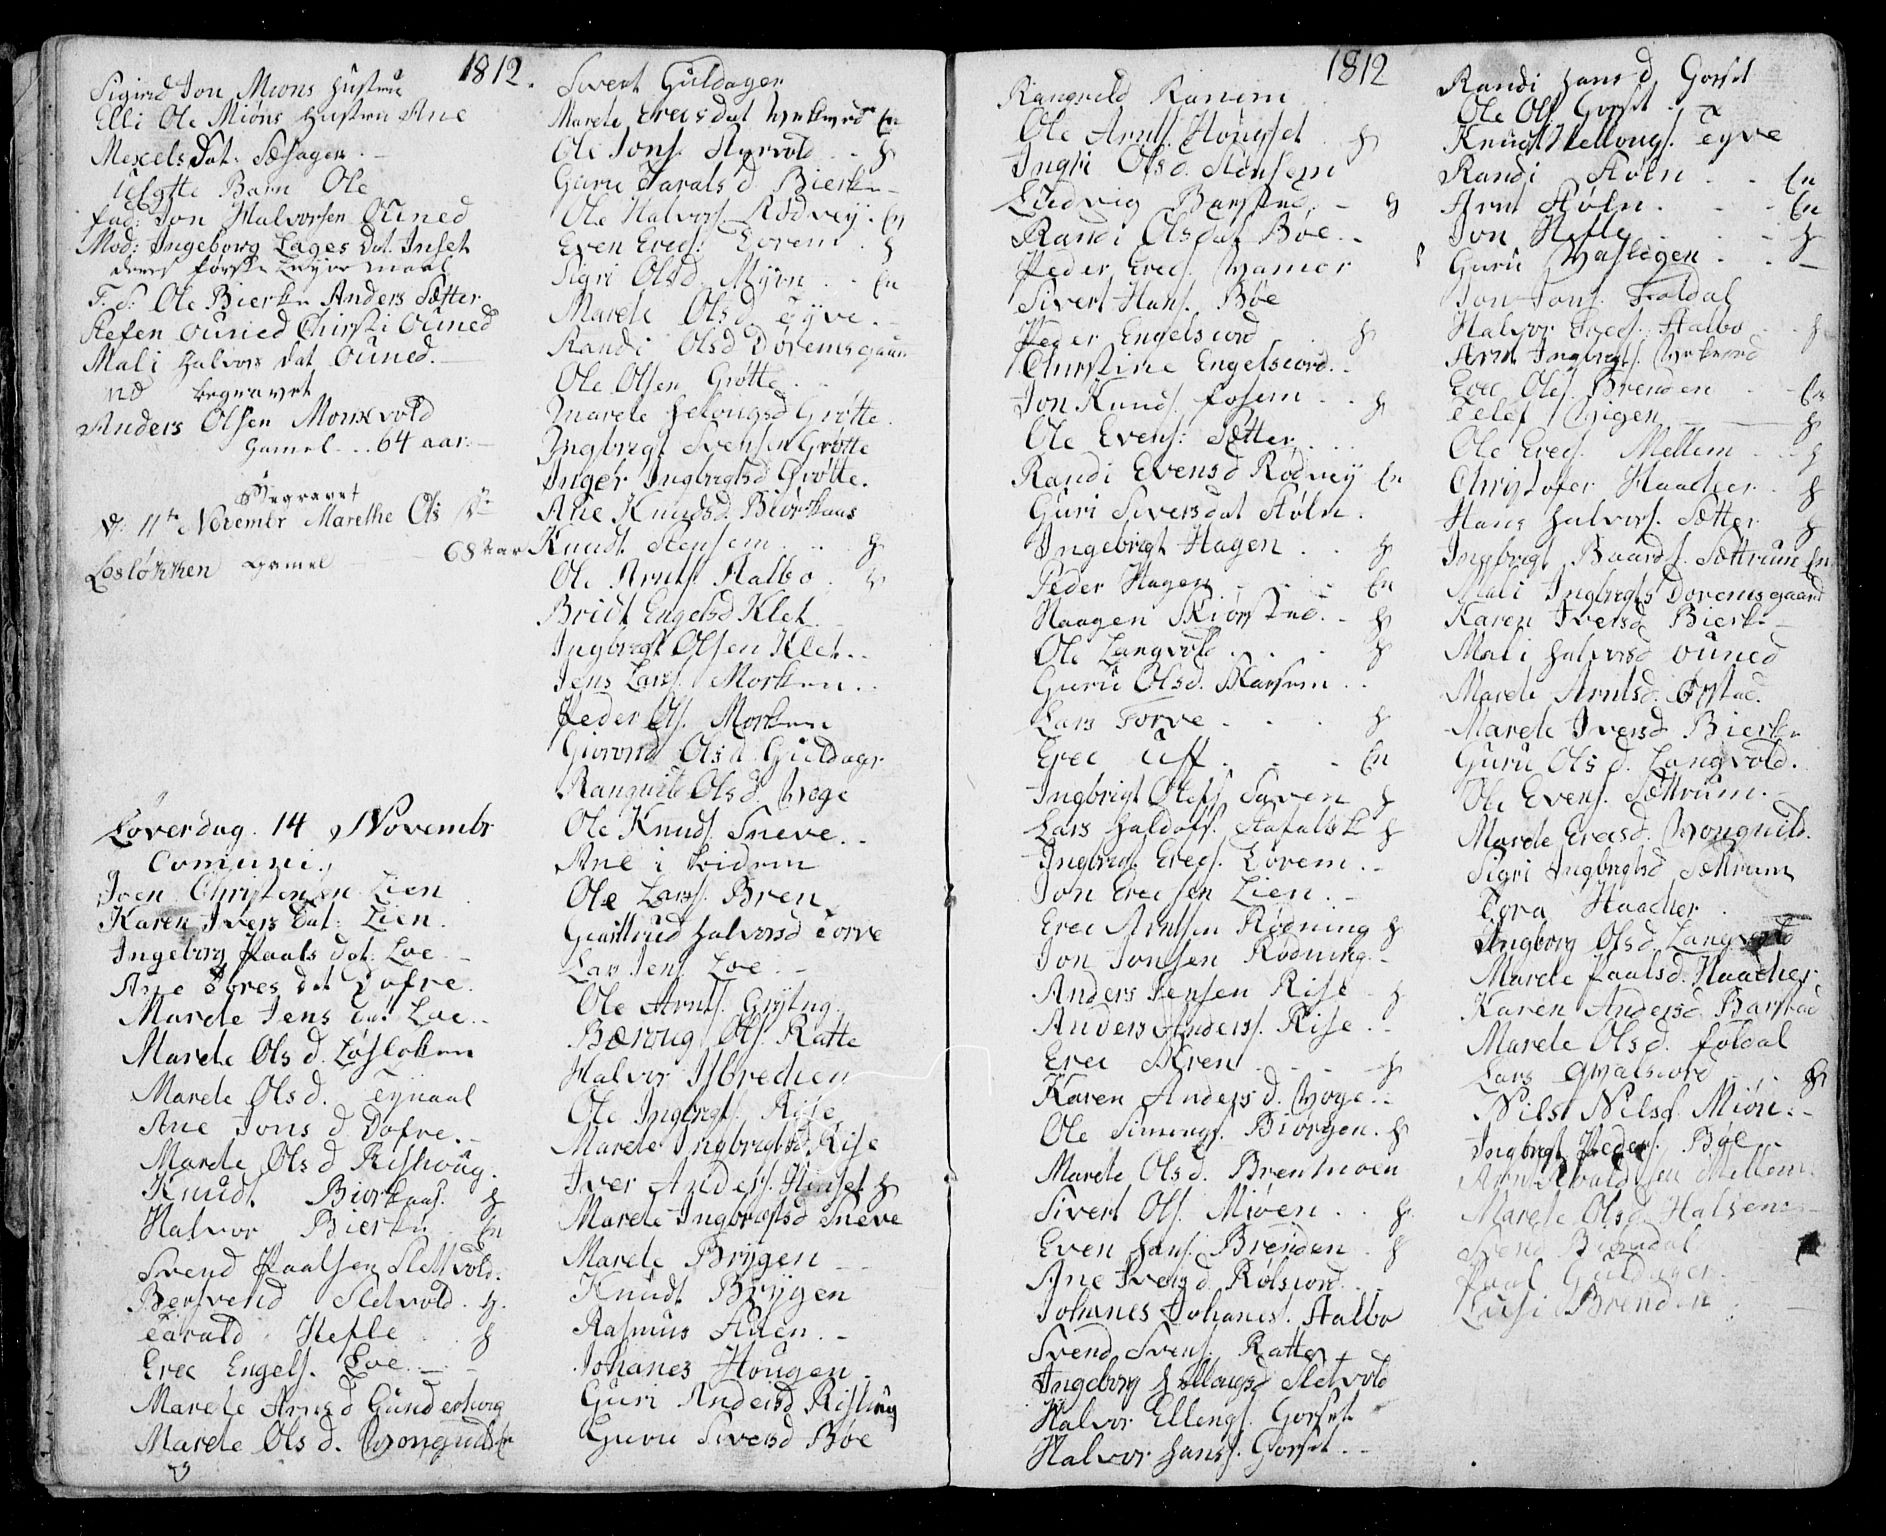 1812.
Sigrid Jon Mions Hustru
Elli Ole Miøns Hustru Ane
Mexels Dat. Sæhagen
Uegtte Barn Ole
fad: Jon Halvorsen Ouned
Mod: Ingeborg Lages Dat. Inset
deres første Leyermaal
F. S: Ole Bierke Anders Sætter
Stefen Ouned Chirsti Ouned
Mali Halvors dat Ouned.
begravet
Anders Olsen Monsvold
Gamel 64 aar.
Begravet
d: 11te November Marethe Ols
Løsløkken Gamel 68 Aar
Løverdag. 14 Novembr
Comuni.
Iven Christensen Lien
Karen Ivers Dat: Lien.
Ingeborg Paals Dat. Loe.
Ane Tores dat Dofre.
Marete Jens dat Loe.
Marete Ols d. Løsløken
Marete Ols d. Tynaal
Ane Jons d Dofre.
Marete Ols d Risehoug.
Knudt Biørkaas. H
Halvor Bierke En
Svend Paalsen Sletvold.
Bersvend Sletvold. H.
Tarald Hefle H
Erec Engels. Loe.
Marete Arns d Gunderhoug
Marete Ols d. Wongnildr
Sivert Guldager
Marete Erecsdat En
Ole Jons. Storvold H
Guru Taralsd. Bierke
Ole Halvors. Rødvey. En
Even Erecs: Lorem H
Sigri Olsd. Myrn En
Marete Olsd Tyve.
Randi Olsd Doremsgaur
Ole Olsen Grøtte.
Marete Helougsd Grøtte.
Ingbrigt Svensen Grøtte
Inger Ingbrigtsd Grøtte.
Ane Knudsd. Biørkaas
Knudt Stensem H
Ole Arnts. Aalbo H
Bridt Engelsd Klet.
Ingbregt Olsen Klet.
Jens Lars. Morken.
Peder Ols. Morken
Giørond Olsd. Guldagr
Rangnild Olsd. Woge
Ole Knuds. Sneve.
Ane i bidem
Ole Lars. Bren
Giærttrud Halvorsd Torve
Lars Jens. Loe.
Ole Arnts. Gryting.
Bæroug Ols. Ratte
Halvor Isbrechen
Ole Ingbrigts. Rise
Marete Ingbrigtsd. Rise
Iver Anders. Hinset H
Marete Ingbrigtsd Sneve
Marete Brygen
Knudt Brygen
Rasmus Auen.
Johanes Hougen
Guri Andersd Risehoug
Guru Siversd Bøe
1812
Rangnild Ranem
Ole Arnts. Hougset. H
Ingri Olsd. Stensem
Ludvig Barstad. H
Randi Olsdat Boe.
Peder Erecs. Wamer
Sivert Hans. Bøe
Peder Engelsiord H
Christine Engelsiord.
Jon Knuds. Fosem H
Ole Evens: Sætter
Randi Evensd Rødvey En
Guri Siversdat Støln.
Ingebrigt Hagen H
Peder Hagen En
Haagen Skiørstad. H
Ole Langvold H
Guru Olsd. Skarsem
Lars Torve H
Erec Uff En
Ingbrigt Olefs. Sæven H
Lars Haldols. Aafalsk H
Ingbrigt Erecs. Lorem.
Jon Erecsen Lien.
Erec Arntsen Rødning H
Jon Jonsen Rødning.
Anders Jensen Rise H
Anders Anders. Rise.
Erec Kren H
Karen Anders d. Woge.
Ole Simens. Biørgen. H
Marete Olsd. Brenhoen
Sivert Ols. Miøen H
Even Hans. Brenden H
Ane Iversd Rølsiord.
Johanes Johanes. Aalbo
Svend Svens: Ratte
Ingeborg Hellaugsd Sletvold
Halvor Ellings. Gorset
Halvor Hans. Gorset.
Randi Hans d. Gorset
Ole Ols. Gorset
Knudt Hellougs. Tyve
Randi Støln En
Arnt Støln. En
Jon Hefle H
Guru Waslegen
Jon Jons. Foldal
Halvor Iverss. Aalbo H
Arnt Ingbrigts.
Erec Ols. Brenden En
Telef Wigen H
Ole Erecs. Mellem H
Christofer Haacher. H
Hans Halvors. Sætter H
Ingbrigt Baards. Sættrum En
Mali Ingbrigts Doremsgaard
Karen Iversd Bierke
Mali Halvorsd Ouned
Marete Arntsd. Ørstad.
Marete Iversd Bierke
Guru Ols d. Langvold.
Ole Evens. Sættrum.
Marete Erecsd. Wongnild.
Sigri Ingbrigtsd Sættrum
Tora Haacher
Ingborg Olsd. Langvold
Marete Paalsd. Haacher
Karen Andersd. Barstad
Marete Olsd. Foldal
Lars H
Nils Nils. Miøn.
Ingbrigt Peders. Bøe
Arnt Mellem
Marete Olsd Halsene
Svend
Paal Guldager
Lusi Brenden